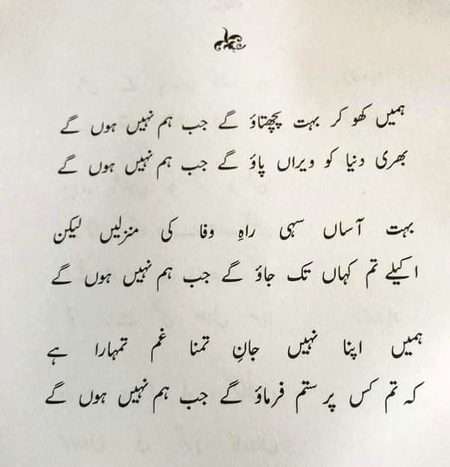 ہمیں کھو کر بہت پچھتاؤ گے جب ہم نہیں ہوں گے
بھری دنیا کو ویراں پاؤ گے جب ہم نہیں ہوں گے
بہت آساں سہی راہِ وفا کی منزلیں لیکن
اکیلے تم کہاں تک جاؤ گے جب ہم نہیں ہوں گے
ہمیں اپنا نہیں جانِ تمنا غم تمہارا ہے
کہ تم کس پر ستم فرماؤ گے جب ہم نہیں ہوں گے